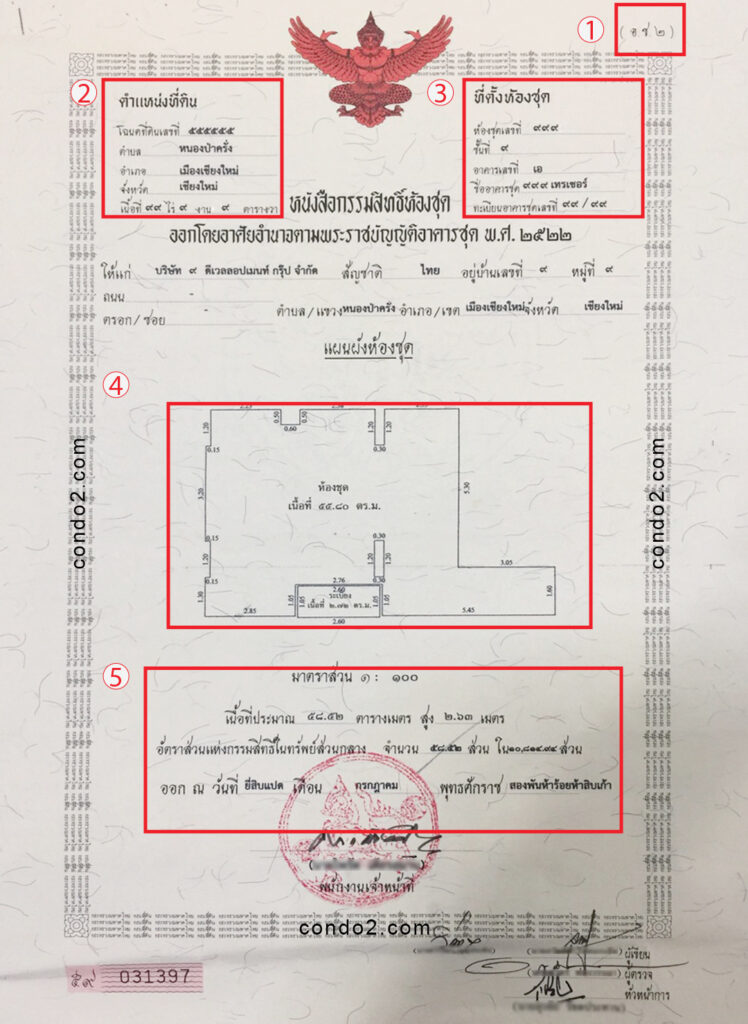 ①
( อ.ช.๒ )
②
ตำแหน่งที่ดิน
โฉนดที่ดินเลขที่ ๕๕๕๕๕๕
ตำบล หนองป่าครั่ง
อำเภอ เมืองเชียงใหม่
จังหวัด เชียงใหม่
เนื้อที่ ๙๙ ไร่ ๙ งาน ๙ ตารางวา
③
ที่ตั้งห้องชุด
ห้องชุดเลขที่ ๙๙๙
ชั้นที่ ๙
อาคารเลขที่ เอ
ชื่ออาคารชุด ๙๙๙ เทรเซอร์
ทะเบียนอาคารชุดเลขที่ ๙๙ / ๙๙
หนังสือกรรมสิทธิ์ห้องชุด
ออกโดยอาศัยอำนาจตามพระราชบัญญัติอาคารชุด พ.ศ. ๒๕๒๒
ให้แก่ บริษัท ๙ ดีเวลลอปเมนท์ กรุ๊ป จำกัด สัญชาติ ไทย อยู่บ้านเลขที่ ๙ หมู่ที่ ๙
ถนน -
ตรอก/ซอย - ตำบล/แขวง หนองป่าครั่ง อำเภอ/เขต เมืองเชียงใหม่ จังหวัด เชียงใหม่
แผนผังห้องชุด
④
0.50 0.50
0.60
1.20 1.20 1.20
0.15 0.30
ห้องชุด
เนื้อที่ ๕๕.๘๐ ตร.ม.
3.20 5.30
0.15 0.30
1.20 1.20
3.05
0.15 2.76 0.30
2.60
ระเบียง
เนื้อที่ ๒.๗๒ ตร.ม.
1.30 1.05 1.05 1.05 1.60
2.85 2.60 5.45
condo2.com
condo2.com
⑤
มาตราส่วน ๑ : ๑๐๐
เนื้อที่ประมาณ ๕๘.๕๒ ตารางเมตร สูง ๒.๖๓ เมตร
อัตราส่วนแห่งกรรมสิทธิ์ในทรัพย์ส่วนกลาง จำนวน ๕๘.๕๒ ส่วน ใน ๑๐,๘๑๔.๙๔ ส่วน
ออก ณ วันที่ ยี่สิบแปด เดือน กรกฎาคม พุทธศักราช สองพันห้าร้อยห้าสิบเก้า
พนักงานเจ้าหน้าที่
condo2.com
ผู้เขียน
ผู้ตรวจ
หัวหน้าการ
031397